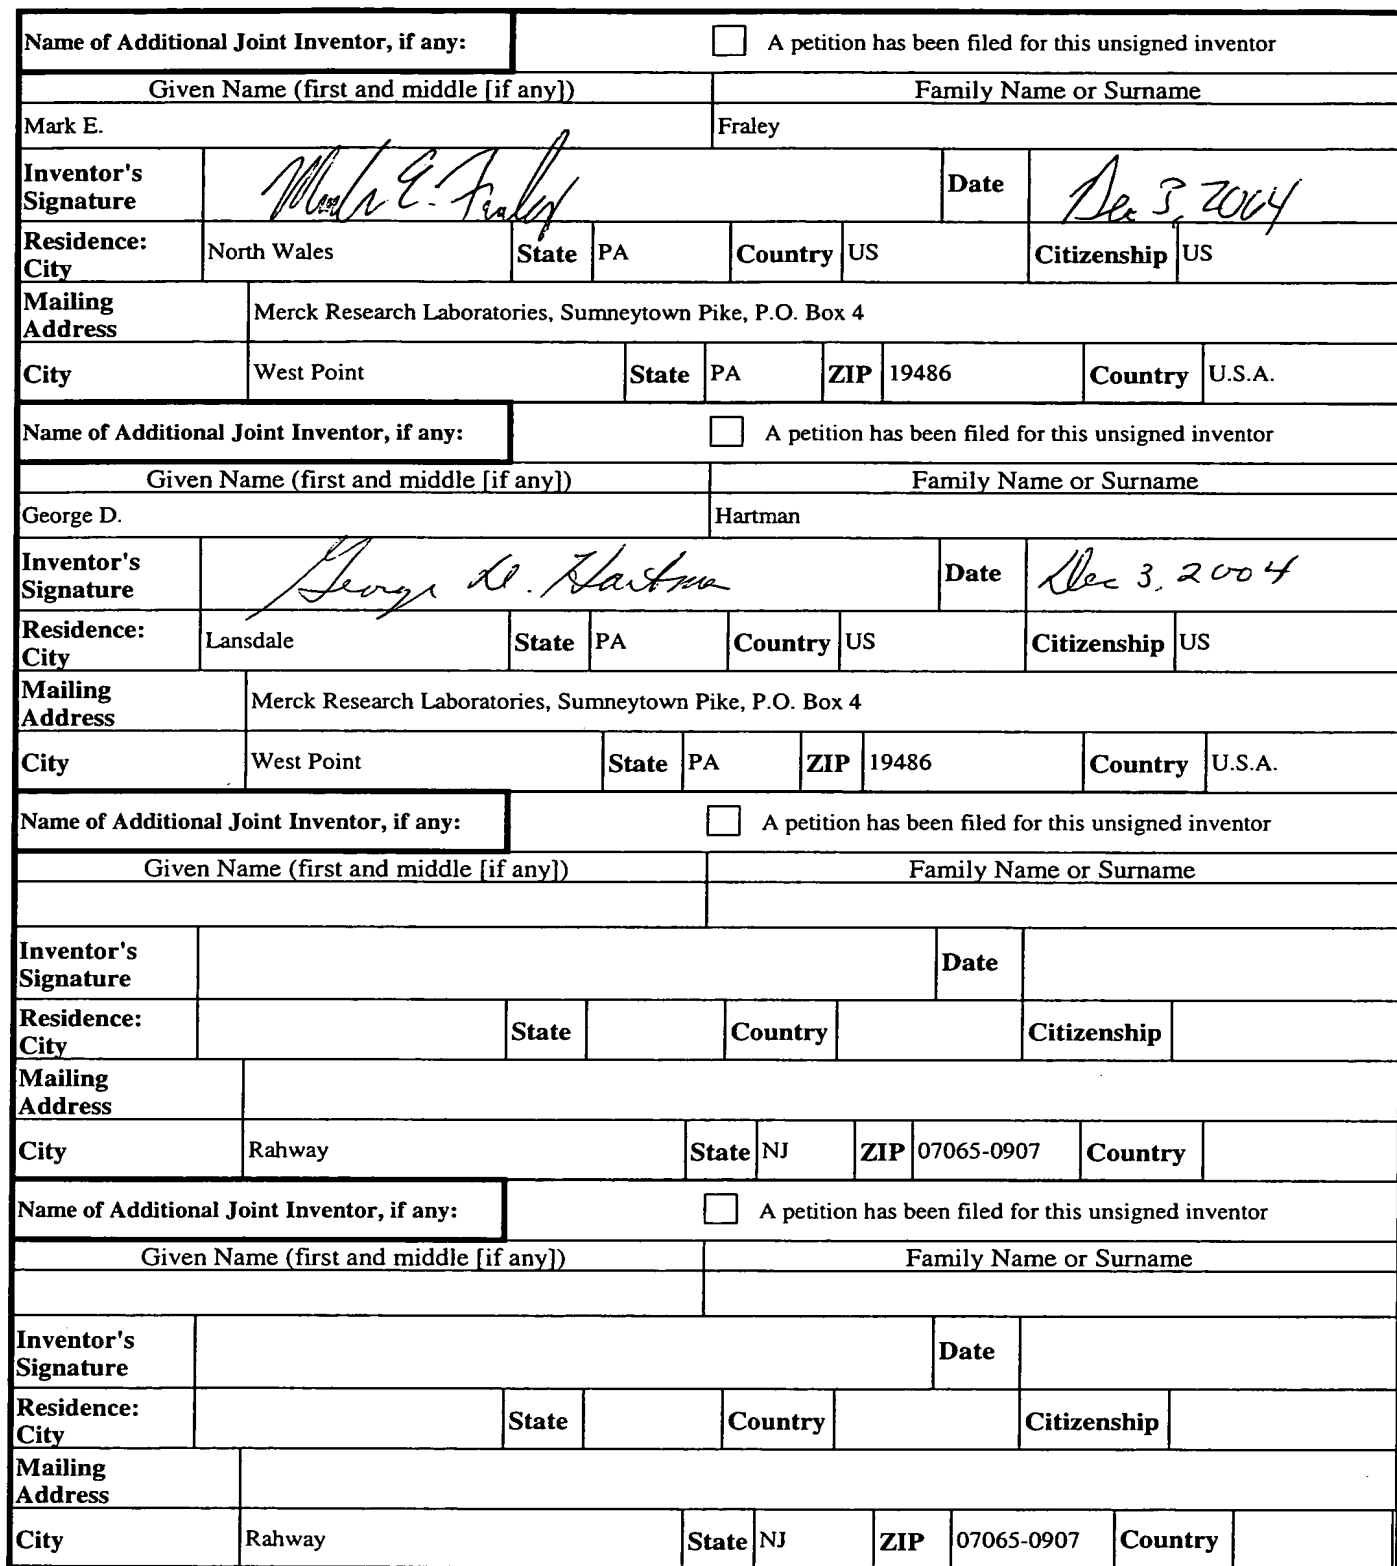 Name of Additional Joint Inventor, if any: A petition has been filed for this unsigned inventor
Given Name (first and middle [if any]) Family Name or Surname
Mark E. Fraley
Inventor's Signature Mark E. Fraley Date Dec 3, 2004
Residence: City North Wales State PA Country US Citizenship US
Mailing Address Merck Research Laboratories, Sumneytown Pike, P.O. Box 4
City West Point State PA ZIP 19486 Country U.S.A.
Name of Additional Joint Inventor, if any: A petition has been filed for this unsigned inventor
Given Name (first and middle [if any]) Family Name or Surname
George D. Hartman
Inventor's Signature George D. Hartman Date Dec 3, 2004
Residence: City Lansdale State PA Country US Citizenship US
Mailing Address Merck Research Laboratories, Sumneytown Pike, P.O. Box 4
City West Point State PA ZIP 19486 Country U.S.A.
Name of Additional Joint Inventor, if any: A petition has been filed for this unsigned inventor
Given Name (first and middle [if any]) Family Name or Surname
Inventor's Signature Date
Residence: City State Country Citizenship
Mailing Address
City Rahway State NJ ZIP 07065-0907 Country
Name of Additional Joint Inventor, if any: A petition has been filed for this unsigned inventor
Given Name (first and middle [if any]) Family Name or Surname
Inventor's Signature Date
Residence: City State Country Citizenship
Mailing Address
City Rahway State NJ ZIP 07065-0907 Country